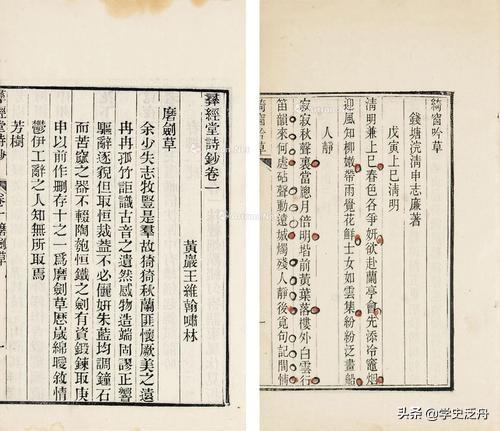 綺窗吟草
錢塘浣清申志廉著
戊寅上巳清明
清明兼上巳春色各爭妍欲赴蘭亭會先添冷竈烟
迎風知柳嫩帶雨覺花鮮士女如雲集紛紛泛畫船
人靜
寂寂秋聲裏當牕月倍明堦前黃葉落樓外白雲行
笛韻來何處砧聲動遠城燭殘人靜後覓句記閒情
綺窗吟草
彝經堂詩鈔卷一
黃巖王維翰嘯林
磨劍草
余少失志牧豎是羣故猗猗秋蘭匪懷厥美之遠
冉冉孤竹詎識古音之遺然感物造端固謬正響
驅辭逐貌但取恒裁蓋不必儷妍朱藍均調鐘石
而苦窳之器不輟陶匏恒鐵之劍有資鍛鍊取庚
申以前作刪存十之一爲磨劍草歷歲綿曖敘情
鬱伊工辭之人知無所取焉
芳樹
彝經堂詩鈔 卷一 磨劍草
头条 @学史泛舟